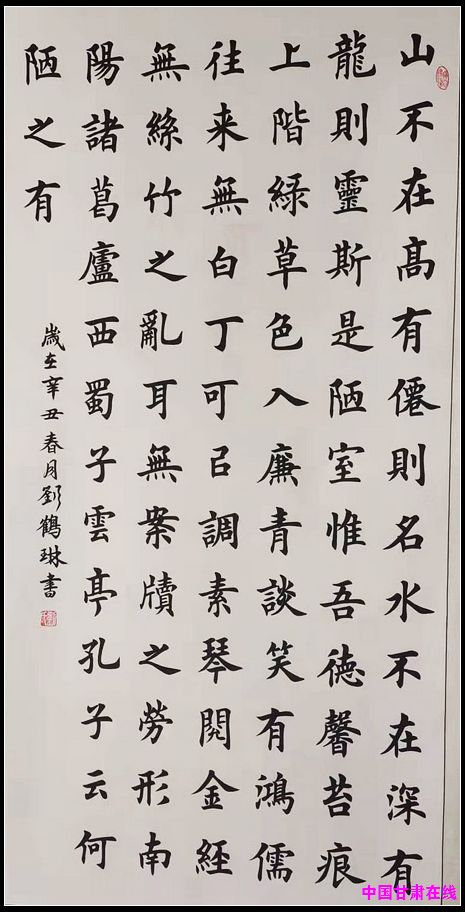 山不在髙有僊則名水不在深有
龍則靈斯是陋室惟吾徳馨苔痕
上階緑草色入廉青談笑有鴻儒
往来無白丁可㠯調素琴閲金經
無絲竹之亂耳無案牘之勞形南
陽諸葛廬西蜀子雲亭孔子云何
陋之有
歲在辛丑春月劉鶴琳書
中国甘肃在线